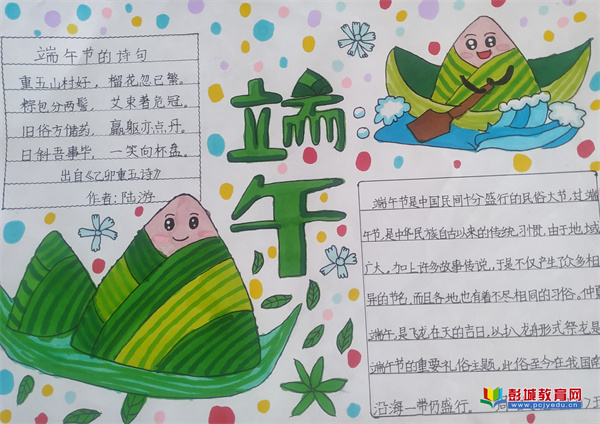 端午节的诗句
重五山村好，榴花忽已繁。
粽包分两髻，艾束著危冠。
旧俗方储药，羸躯亦点丹。
日斜吾事毕，一笑向杯盘。
出自《乙卯重五诗》
作者：陆游
端午
端午节是中国民间十分盛行的民俗大节，过端
午节，是中华民族自古以来的传统习惯，由于地域
广大，加上许多故事传说，于是不仅产生了众多相
异的节名，而且各地也有着不尽相同的习俗。仲夏
端午，是飞龙在天的吉日，以扒龙舟形式祭龙是
端午节的重要礼俗主题，此俗至今在我国南
沿海一带仍盛行。
彭城教育网
www.pcjyedu.cn